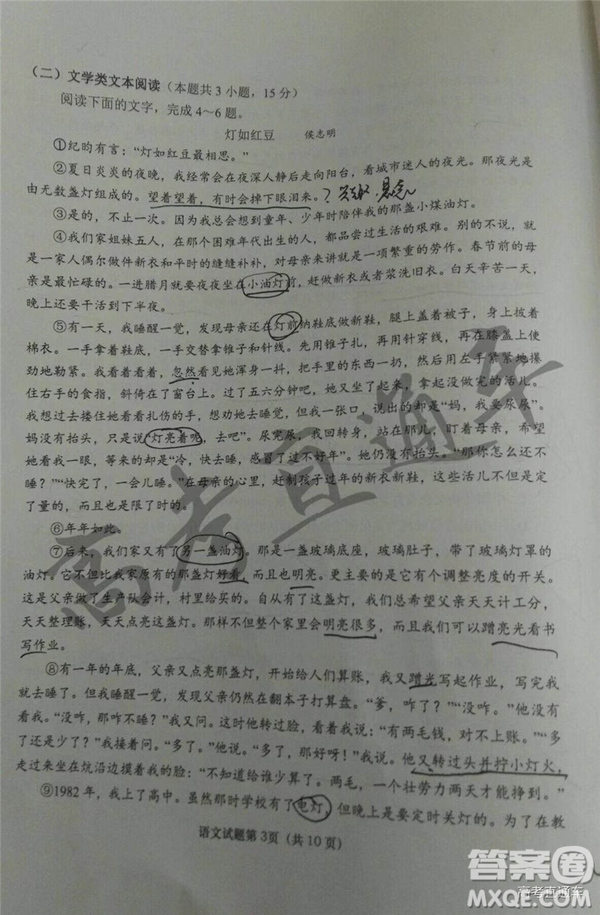 （二）文学类文本阅读（本题共3小题，15分）
阅读下面的文字，完成4～6题。
灯如红豆 侯志明
①纪昀有言：“灯如红豆最相思。”
②夏日炎炎的夜晚，我经常会在夜深人静后走向阳台，看城市迷人的夜光。那夜光是
由无数盏灯组成的。望着望着，有时会掉下眼泪来。？
③是的，不止一次。因为我总会想到童年、少年时陪伴我的那盏小煤油灯。
④我们家姐妹五人，在那个困难年代出生的人，都品尝过生活的艰难。别的不说，就
是一家人偶尔做件新衣和平时的缝缝补补，对母亲来讲就是一项繁重的劳作。春节前的母
亲是最忙碌的。一进腊月就要夜夜坐在小油灯前，赶做新衣或者浆洗旧衣。白天辛苦一天，
晚上还要干活到下半夜。
⑤有一天，我睡醒一觉，发现母亲还在灯前纳鞋底做新鞋，腿上盖着被子，身上披着
棉衣。一手拿着鞋底，一手交替拿锥子和针线。先用锥子扎，再用针穿线，再在膝盖上使
劲地勒紧。我看着看着，忽然看见她浑身一抖，把手里的东西一扔，然后用左手紧紧地攥
住右手的食指，斜倚在了窗台上。过了五六分钟吧，她又坐了起来，拿起没做完的活儿。
我想过去搂住她看看扎伤的手，想劝她去睡觉，但我一张口，说出的却是“妈，我要尿尿”。
妈没有抬头，只是说“灯亮着呢，去吧”。尿完尿，我回转身，站在灯下，盯着母亲，希望
她看我一眼，等来的却是“冷，快去睡，感冒了过不好年”。她仍没有抬头。“那你怎么还不
睡？”“快完了，一会儿睡。”在母亲的心里，赶制孩子过年的新衣新鞋，这些活儿不但是定
了量的，而且也是限了时的。
⑥年年如此。
⑦后来，我们家又有了另一盏油灯。那是一盏玻璃底座，玻璃肚子，带了玻璃灯罩的
油灯。它不但比我家原有的那盏灯好看，而且也明亮。更主要的是它有个调整亮度的开关。
这是父亲做了生产队会计，村里给买的。自从有了这盏灯，我总希望父亲天天计工分，
天天整理账，天天点亮这盏灯。那样不但整个家里会明亮很多，而且我们可以蹭亮光看书
写作业。
⑧有一年的年底，父亲又点亮那盏灯，开始给人们算账，我又蹭光写起作业，写完我
就去睡了。但我睡醒一觉，发现父亲仍然在翻本子打算盘。“爹，咋了？”“没咋。”他没有
看我。“没咋，那咋不睡？”我又问。这时他转过脸，看着我说：“有两毛钱，对不上账。”“多
了还是少了？”我接着问。“多了。”他说。“多了，那好呀！”我说。他又转过头并拧小灯火，
走过来坐在炕沿边摸着我的脸：“不知道给谁少算了。两毛，一个壮劳力两天才能挣到。”
⑨1982年，我上了高中。虽然那时学校有了电灯，但晚上是要定时关灯的。为了在教
语文试题第3页（共10页）
高考直通车
答案圈
MXQE.COM
高考直通车